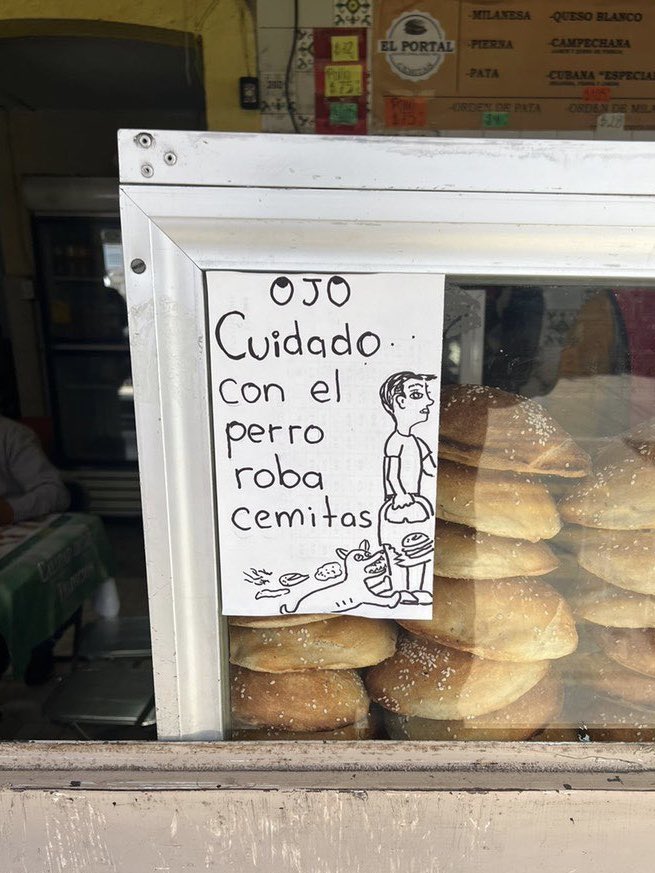 EL PORTAL
CEMITAS
-MILANESA
-QUESO BLANCO
-PIERNA
-CAMPECHANA
-PATA
-CUBANA "ESPECIA
-ORDEN DE PATA
-ORDEN DE MILA
OJO
Cuidado
con el
perro
roba
cemitas